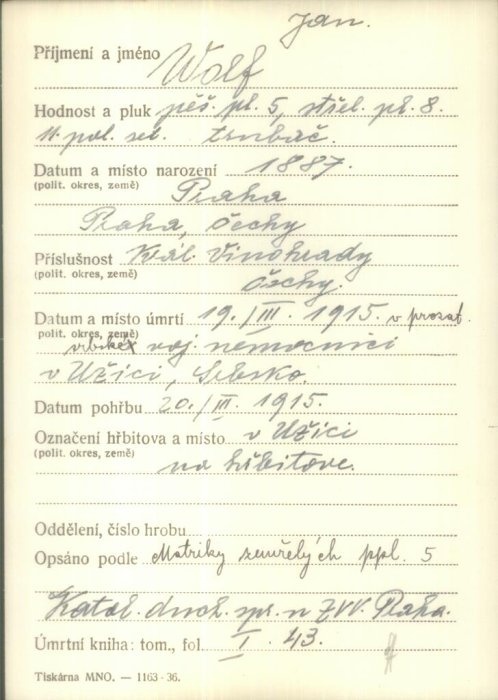 Jan.
Příjmení a jméno Wolf
Hodnost a pluk pěš. pl. 5, střel. pl. 8.
11. pol. set. trubač.
Datum a místo narození 1887.
(polit. okres, země) Praha
Praha, Čechy
Příslušnost Král. Vinohrady
(polit. okres, země) Čechy.
Datum a místo úmrtí 19./III. 1915. v prozat.
polit. okres, země) voj. nemocnici
v Užici, Srbsko.
Datum pohřbu 20./III. 1915.
Označení hřbitova a místo v Užici
(polit. okres, země) na hřbitově.
Oddělení, číslo hrobu
Opsáno podle Matriky zemřelých ppl. 5
Katol. duch. spr. u ZVV. Praha.
Úmrtní kniha: tom., fol. I. 43.
Tiskárna MNO. — 1163-36.